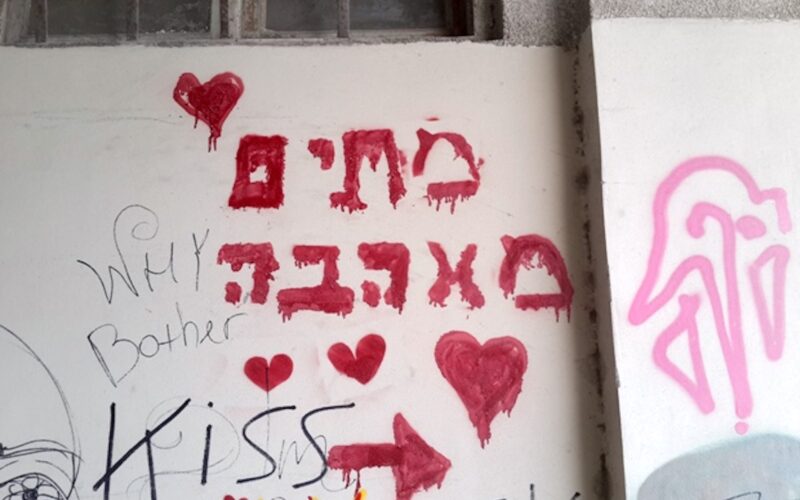 מתים
מאהבה
WHY
Bother
KiSS